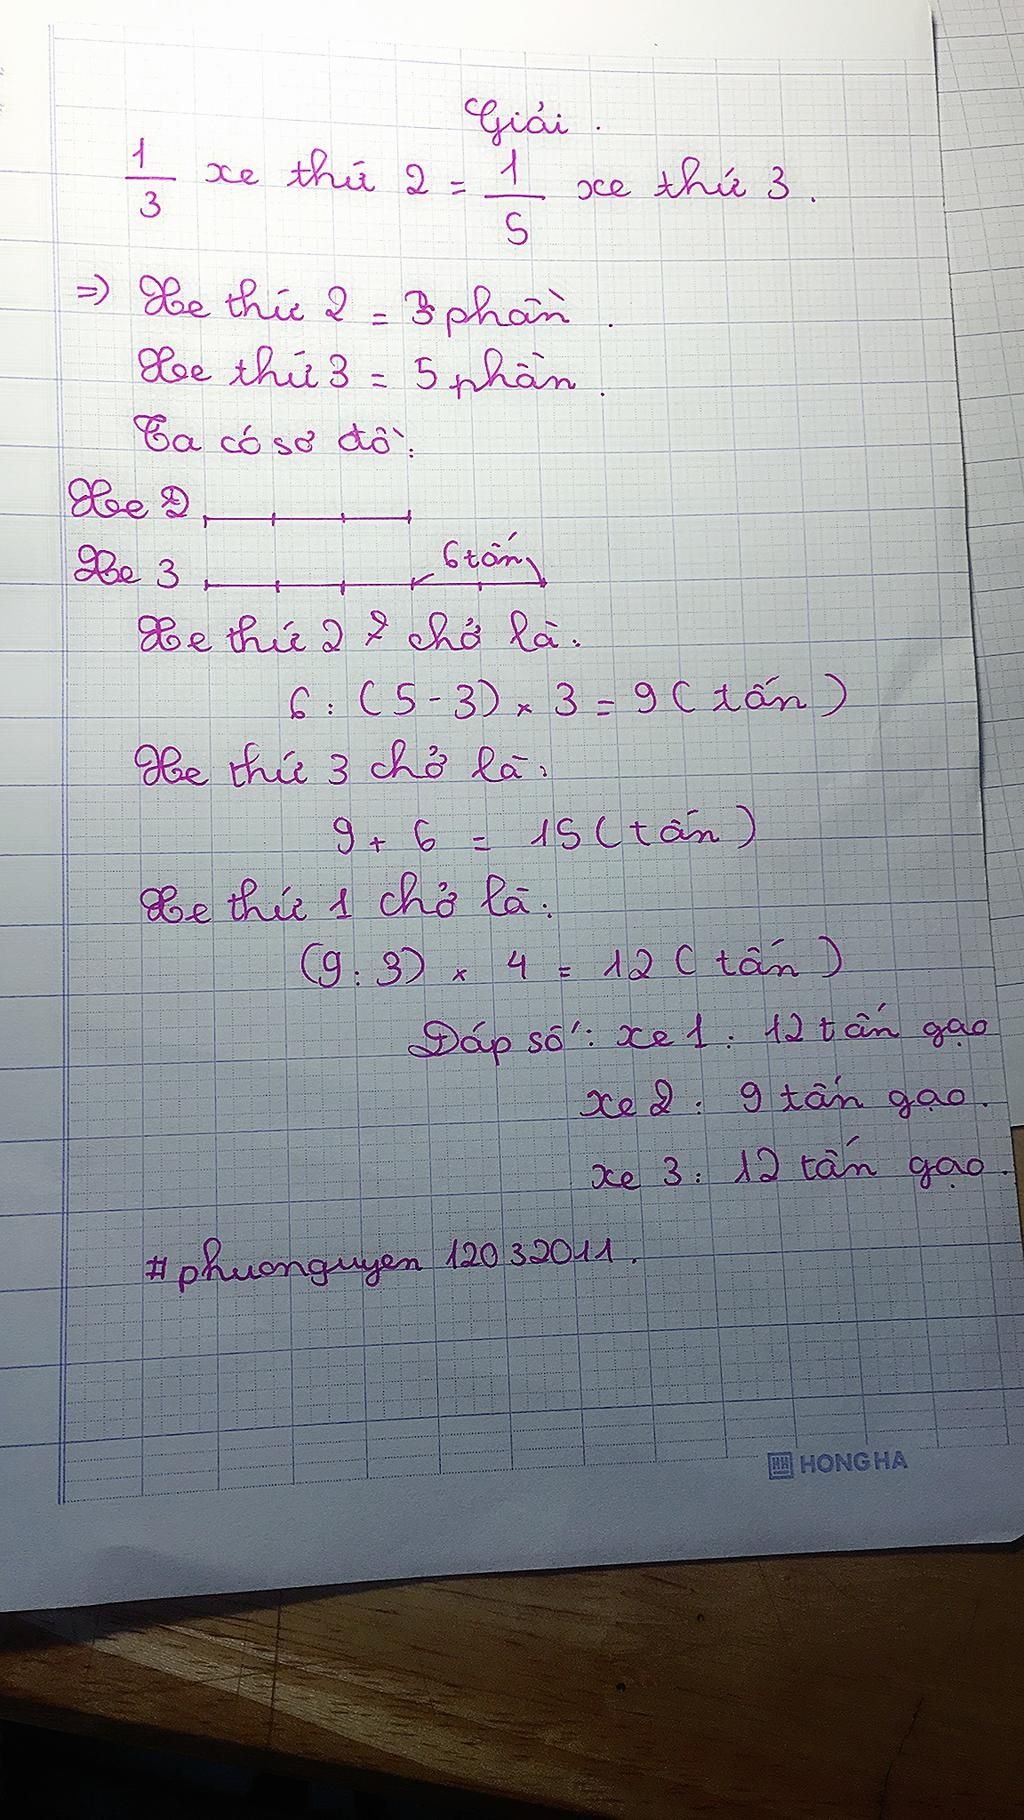 Giải.
1/3 xe thứ 2 = 1/5 xe thứ 3.
=> Xe thứ 2 = 3 phần.
Xe thứ 3 = 5 phần.
Ta có sơ đồ:
Xe 2
Xe 3 6 tấn
Xe thứ 2 chở là:
6 : (5 - 3) × 3 = 9 (tấn)
Xe thứ 3 chở là:
9 + 6 = 15 (tấn)
Xe thứ 1 chở là:
(9 : 3) × 4 = 12 (tấn)
Đáp số: xe 1: 12 tấn gạo
xe 2: 9 tấn gạo.
xe 3: 12 tấn gạo.
#phuonguyen 12032011.
HH HONG HA